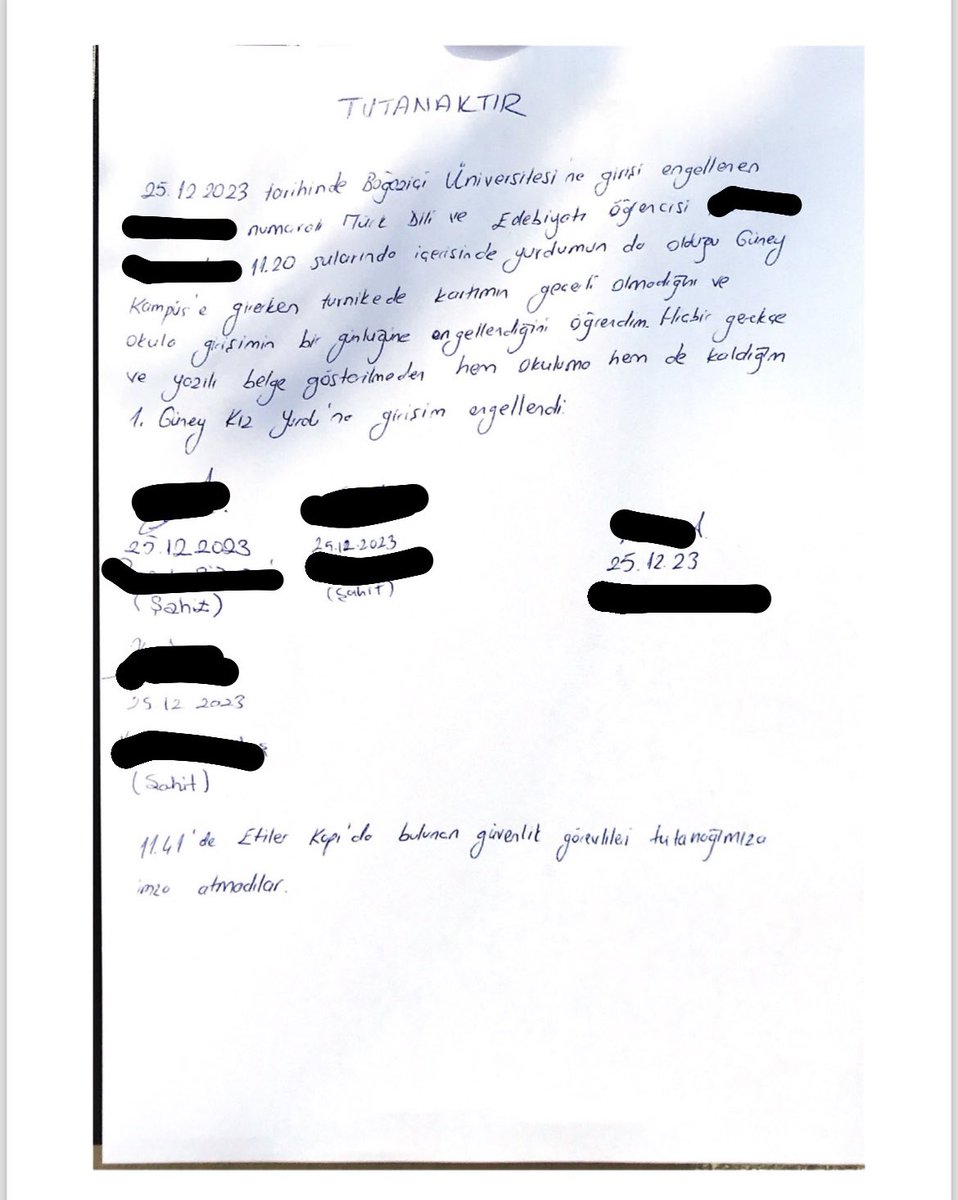 TUTANAKTIR
25.12.2023 tarihinde Boğaziçi Üniversitesi'ne girişi engellenen
numaralı Türk Dili ve Edebiyatı Öğrencisi
11.20 sularında içerisinde yurdumun da olduğu Güney
Kampüs'e girerken turnikede kartımın geçerli olmadığını ve
okula girişimin bir günlüğüne engellendiğini öğrendim. Hiçbir gerekçe
ve yazılı belge gösterilmeden hem okuluma hem de kaldığım
1. Güney Kız Yurdu'na girişim engellendi.
25.12.2023 25.12.2023 25.12.23
(Şahit) (Şahit)
25 12 2023
(Şahit)
11.41'de Etiler Kapı'da bulunan güvenlik görevlileri tutanağımıza
imza atmadılar.